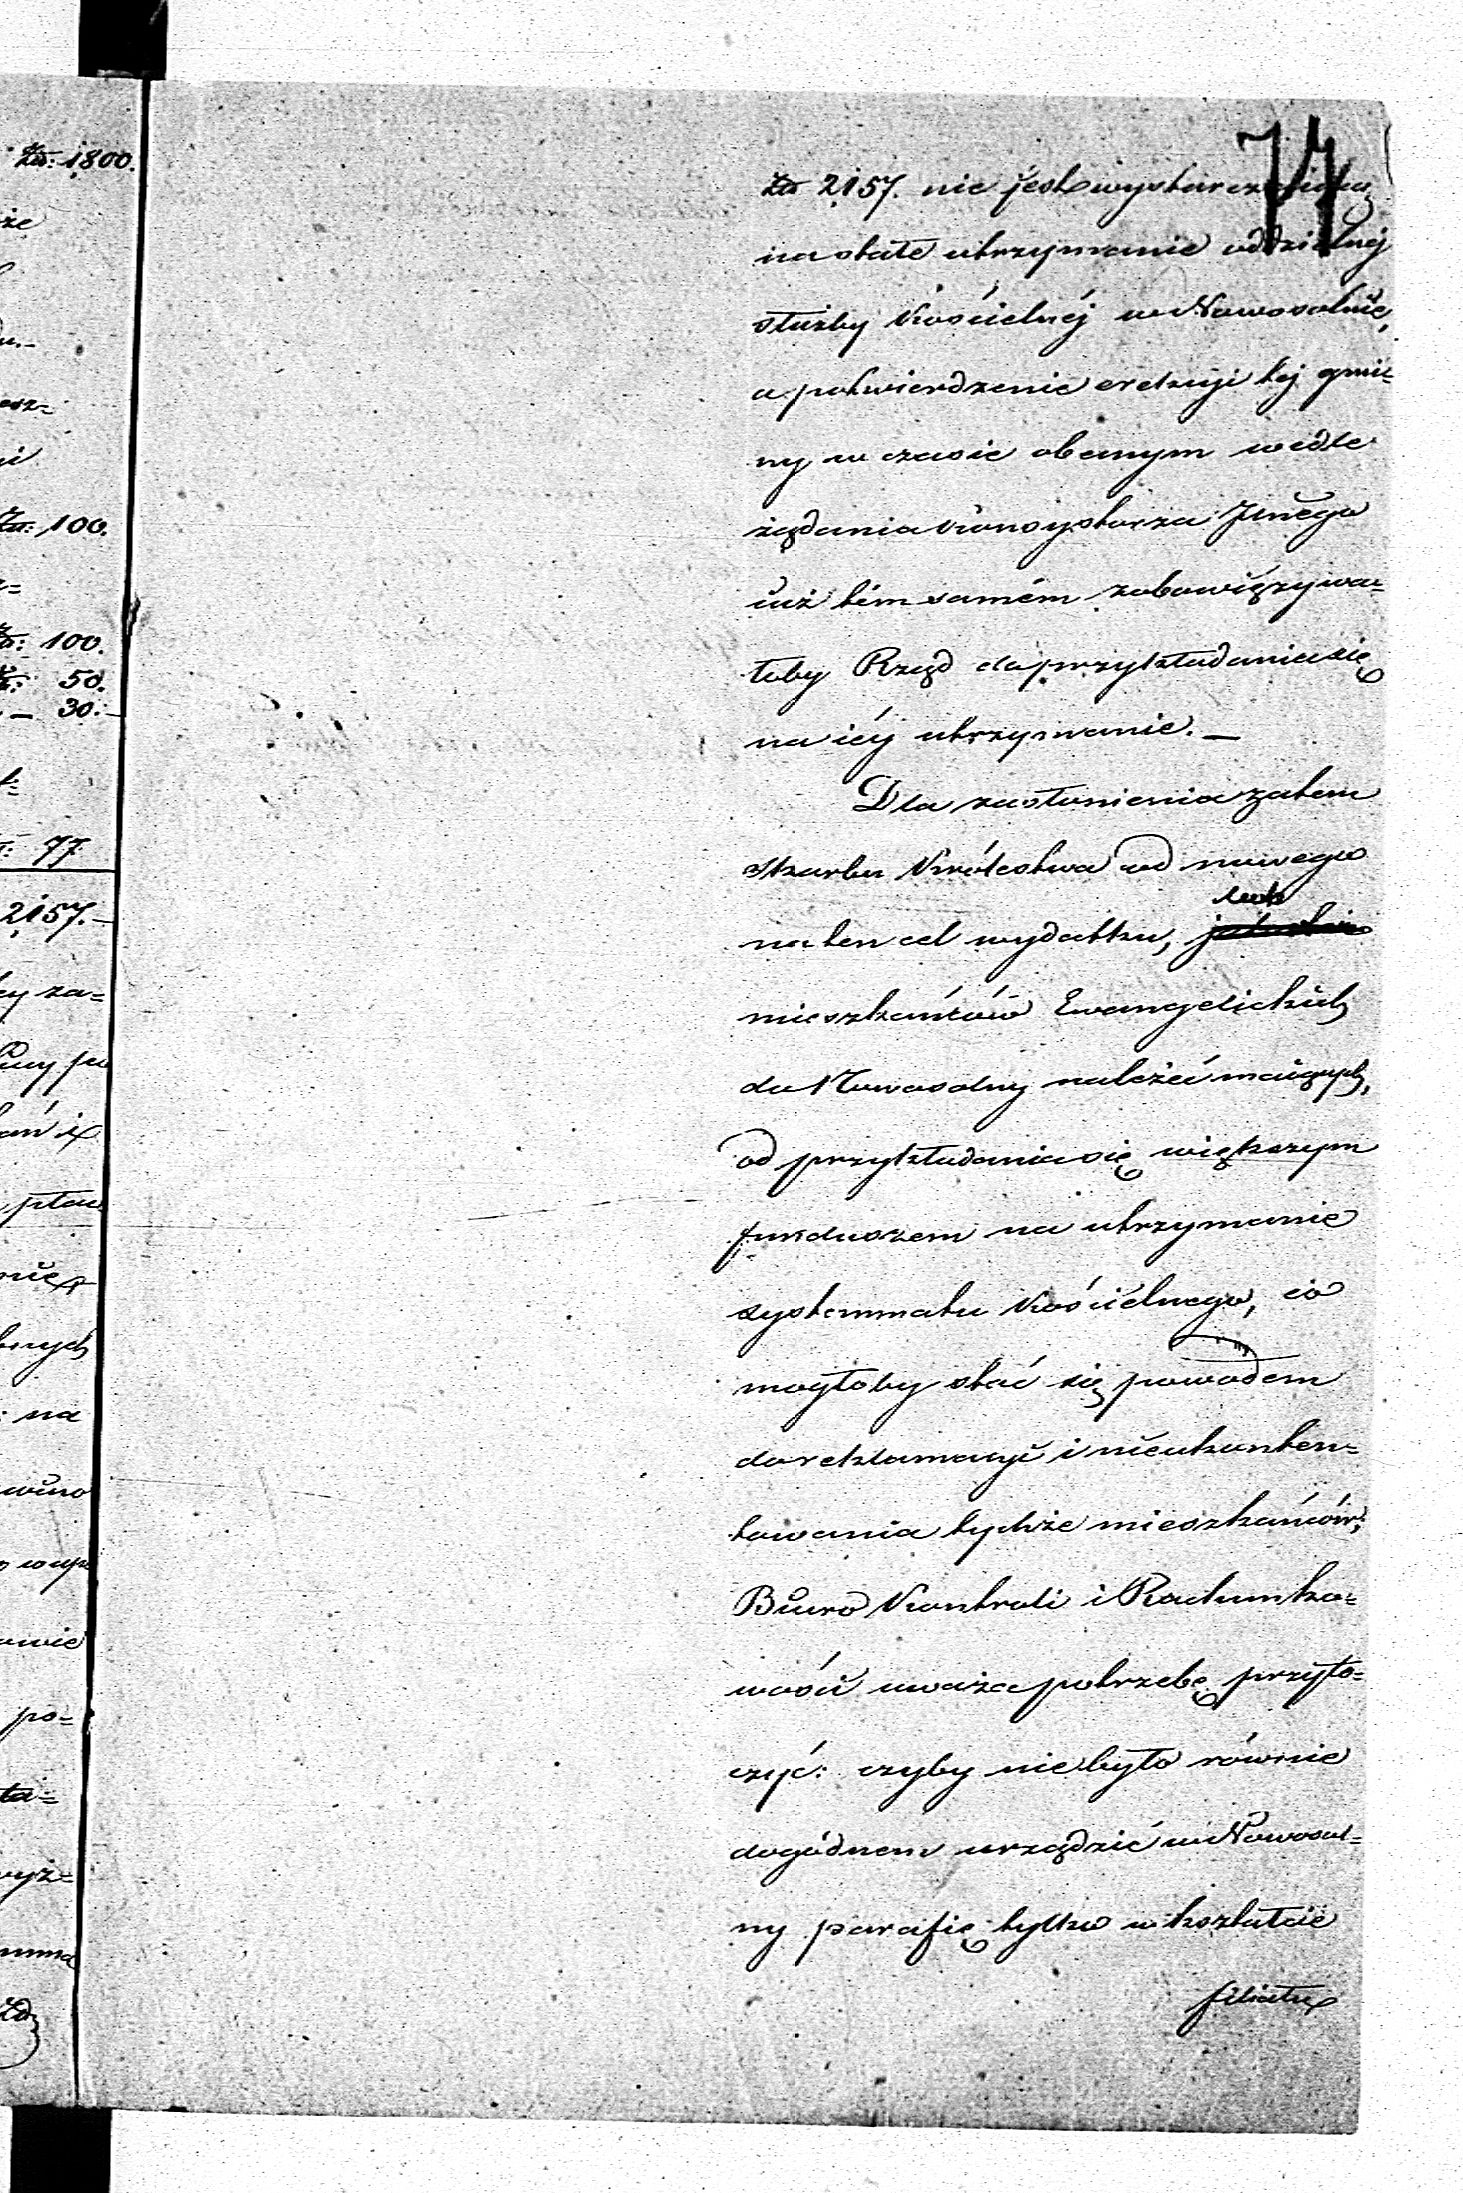 Zło: 1800.
że
Zło: 100.
100.
50.
30.
77
2157.
ey za=
: na
po=
wyż=
74
Zło 2157. nie jest wystarczaiącą
na stałe utrzymanie oddzielnéj
służby Kościelnéj w Nowosolnie,
a potwierdzenie erekcyi tej gmi-
ny w czasie obecnym wedle
żądania Konsystorza Jlnego
iuż tém samém zobowiązywa-
łoby Rząd do przykładania się
na iéy utrzymanie. —
Dla zasłonienia zatem
Skarbu Królestwa od nowego
na ten cel wydatku, lub
mieszkańców Ewangelickich
do Nowosolny należeć maiących,
od przykładania się większym
funduszem na utrzymanie
systemmatu Kościelnego, co
mogłoby stać się powodem
do reklamacyi i nieukonten=
towania tychże mieszkańców;
Biuro Kontroli i Rachunko=
wości uważa potrzebę przyto=
czyć: czyby nie było równie
dogódnem urządzić w Nowosol=
ny parafię tylko w kształcie
filiału